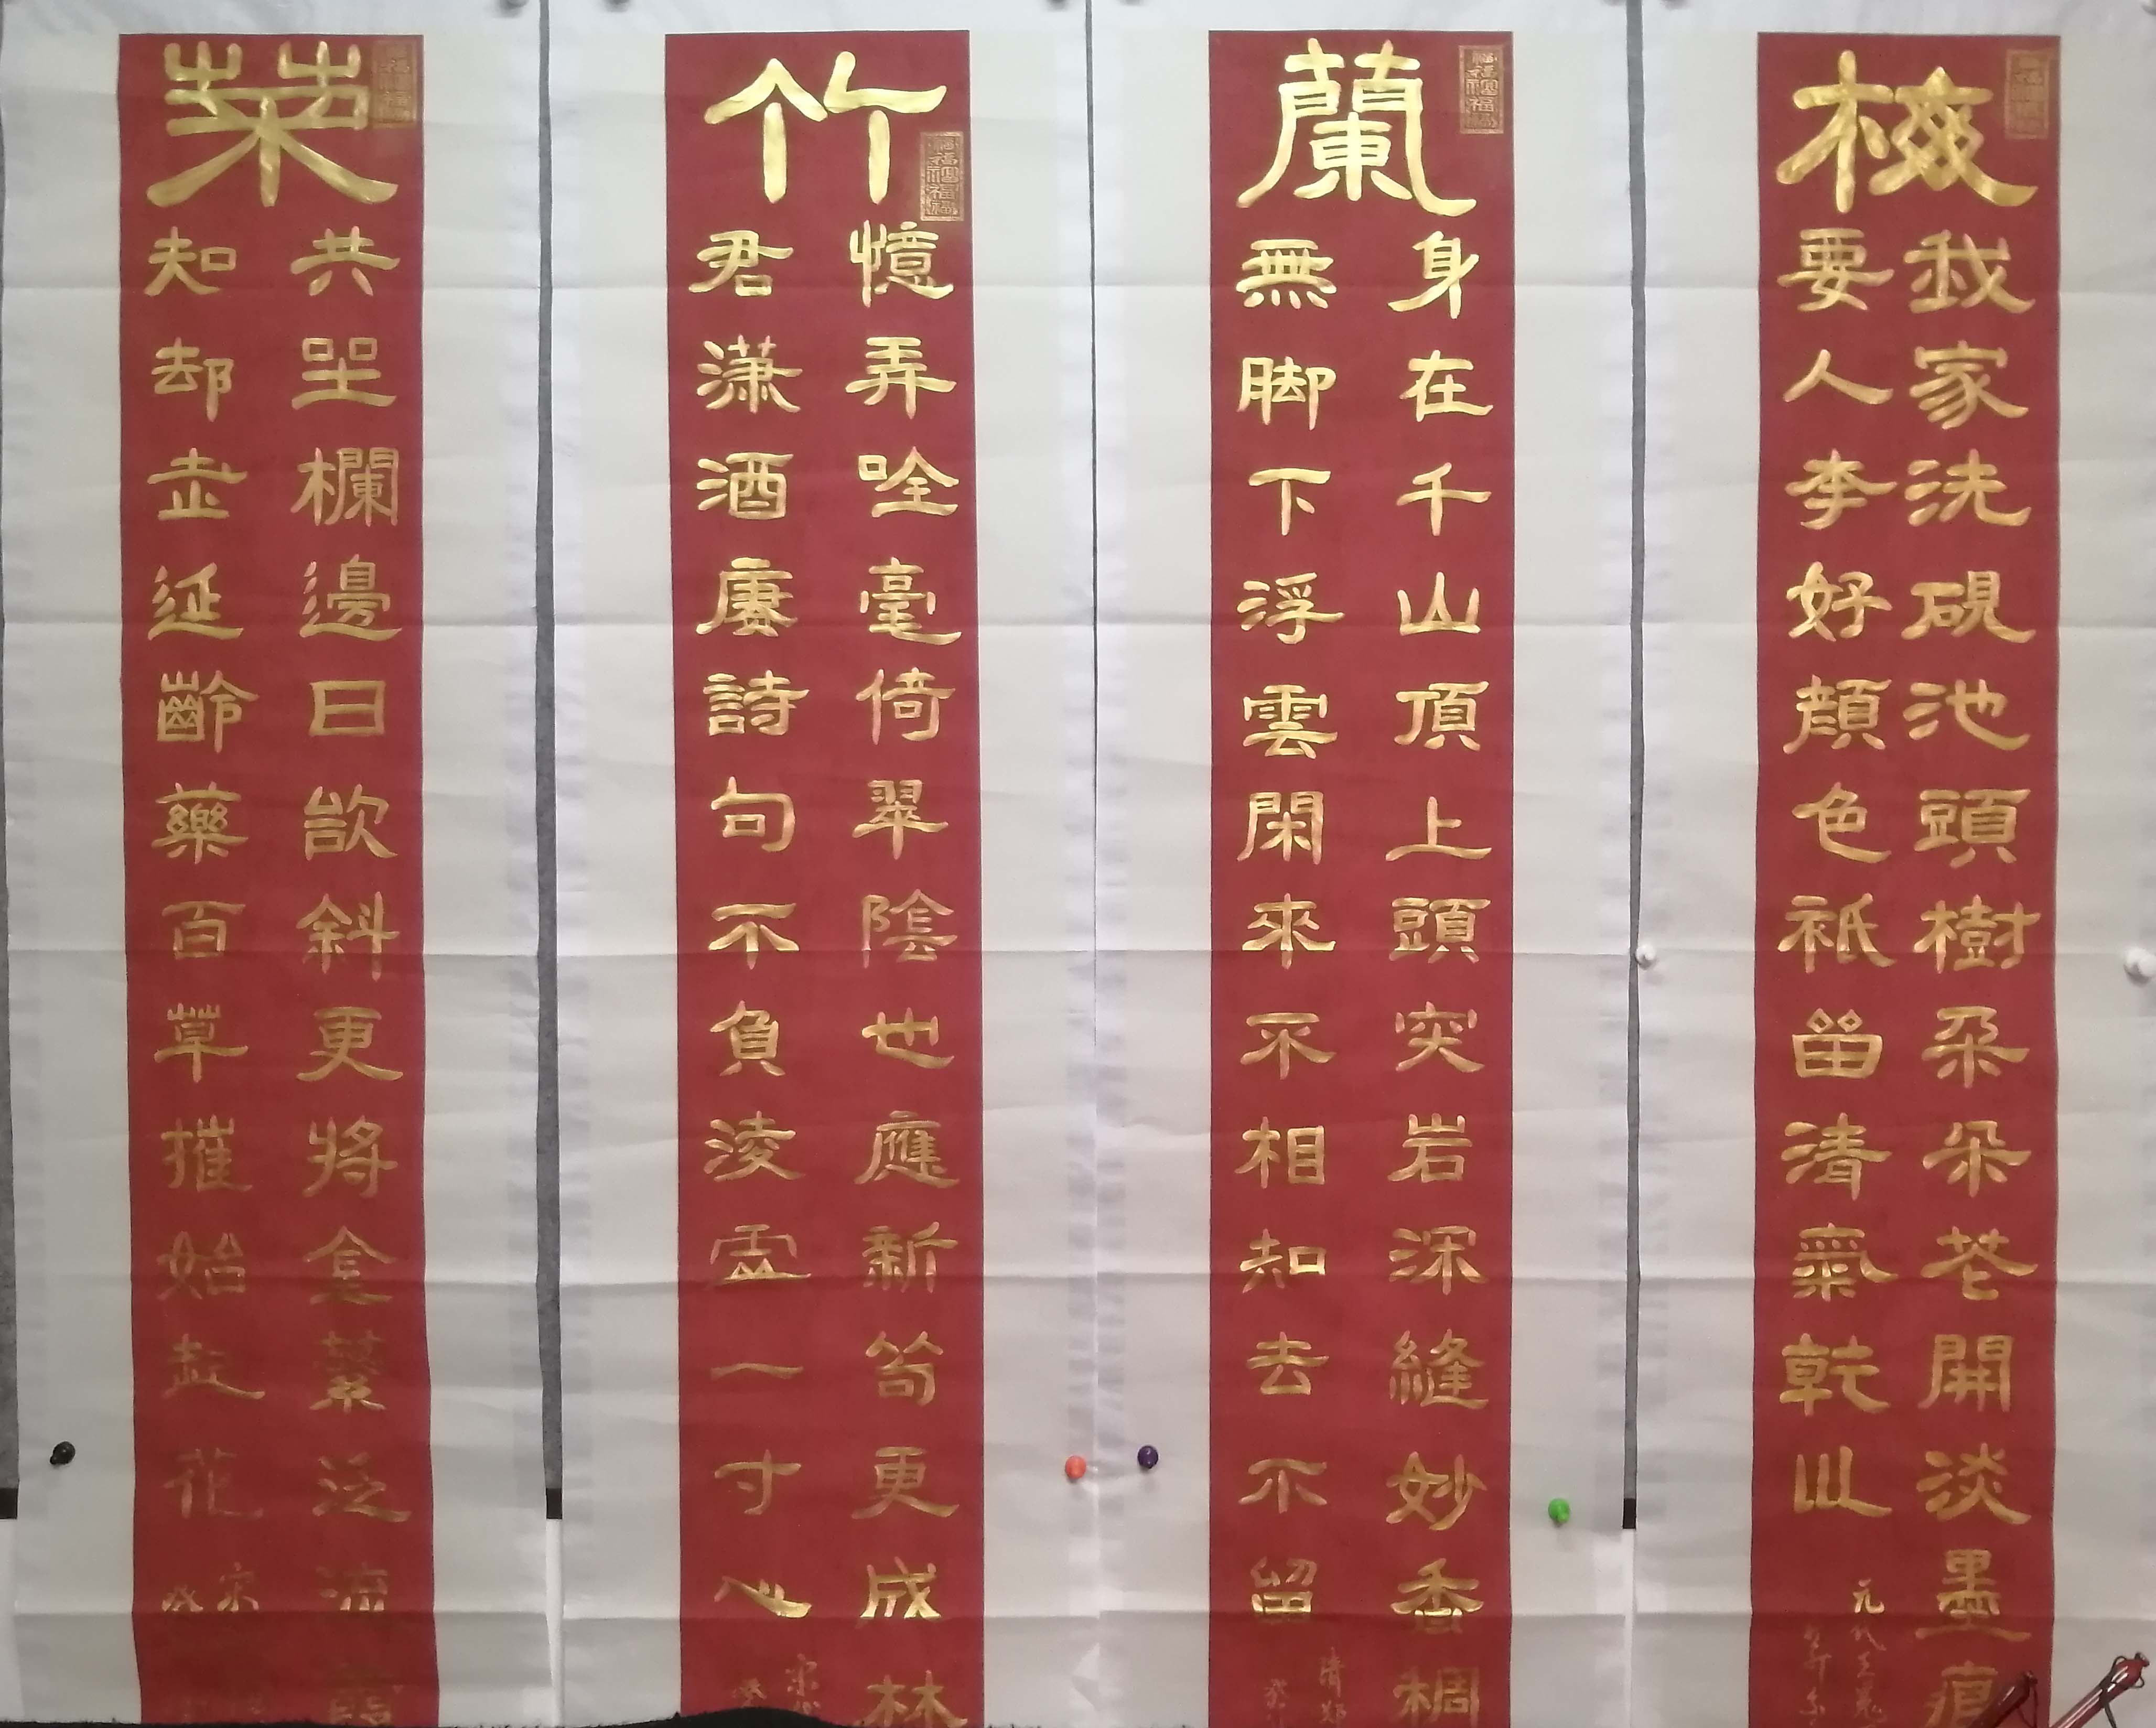 梅
我家洗硯池頭樹朵朵花開淡墨痕
要人夸好顔色祇留清氣乾坤
元代王冕
蘭
身在千山頂上頭突岩深縫妙香稠
無脚下浮雲閑來不相知去不留
清鄭
竹
憶弄吟毫倚翠陰也應新筍更成林
君瀟洒賡詩句不負淩雲一寸心
宋
菊
共坐欄邊日欲斜更將金蘂泛流霞
知却老延齡藥百草摧始起花
宋